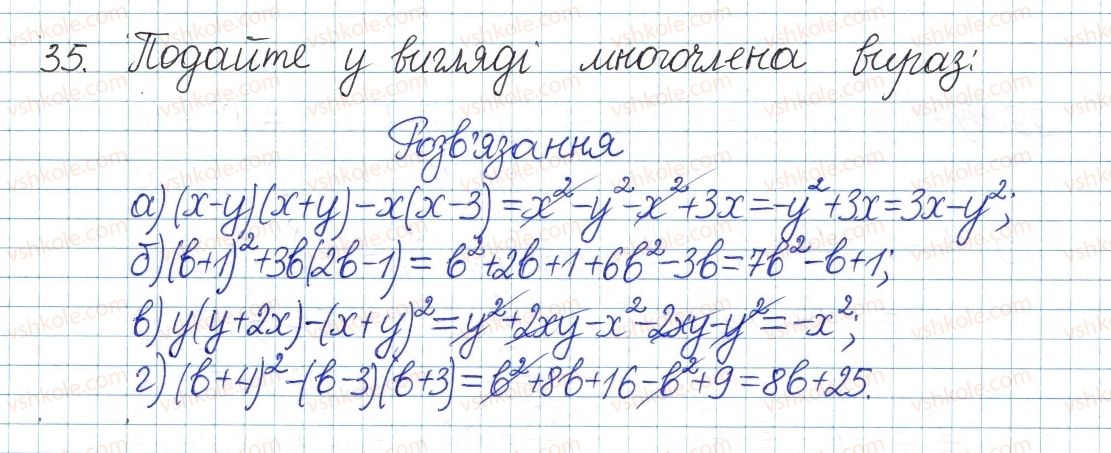 35. Подайте у вигляді многочлена вираз:
Розв'язання
а) (x-y)(x+y)-x(x-3)=x²-y²-x²+3x=-y²+3x=3x-y²;
б) (b+1)²+3b(2b-1)=b²+2b+1+6b²-3b=7b²-b+1;
в) y(y+2x)-(x+y)²=y²+2xy-x²-2xy-y²=-x²;
г) (b+4)²-(b-3)(b+3)=b²+8b+16-b²+9=8b+25.